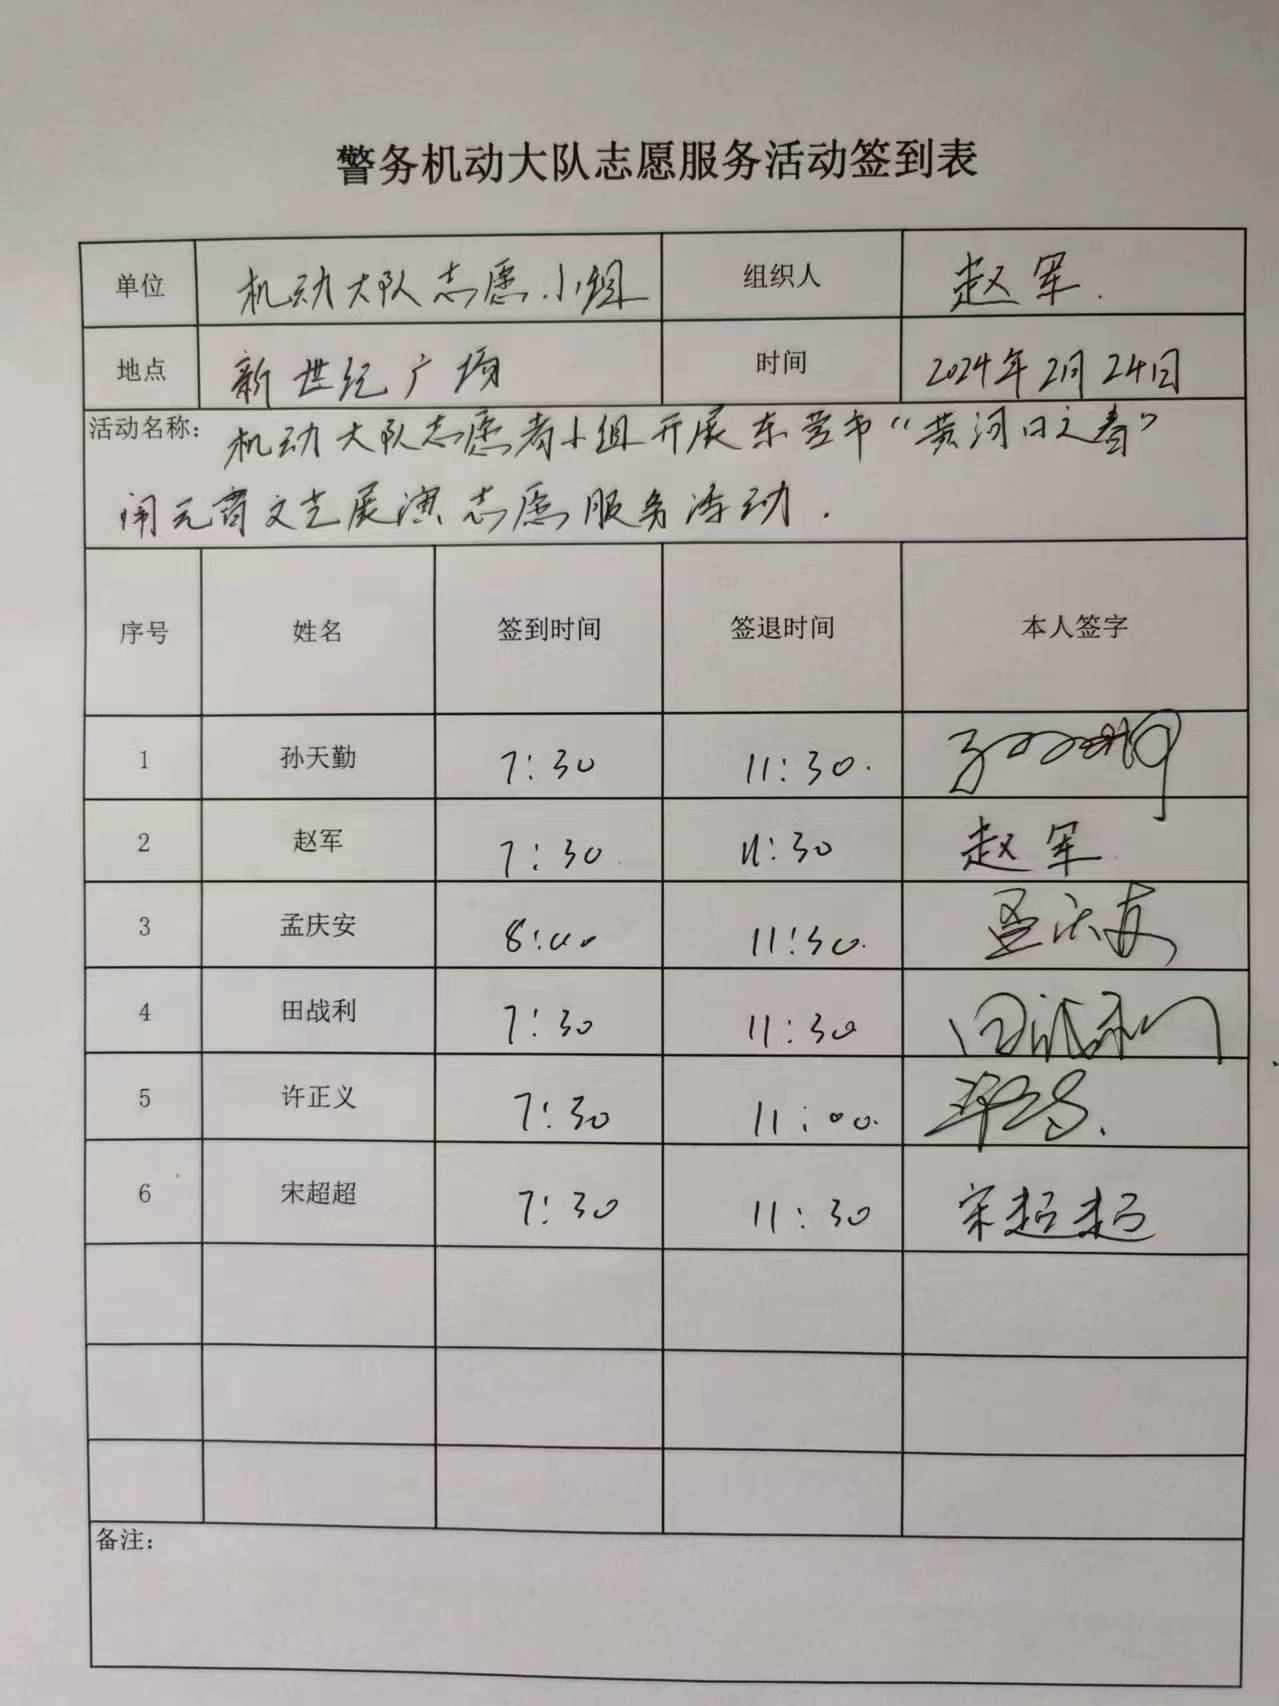 警务机动大队志愿服务活动签到表
单位 机动大队志愿小组 组织人 赵军.
地点 新世纪广场 时间 2024年2月24日
活动名称: 机动大队志愿者小组开展东营市“黄河口之春”
闹元宵文艺展演志愿服务活动.
序号 姓名 签到时间 签退时间 本人签字
1 孙天勤 7:30 11:30.
2 赵军 7:30. 11:30 赵军
3 孟庆安 8:00 11:30. 孟庆安
4 田战利 7:30 11:30 田战利
5 许正义 7:30 11:00.
6 宋超超 7:30 11:30 宋超超
备注: